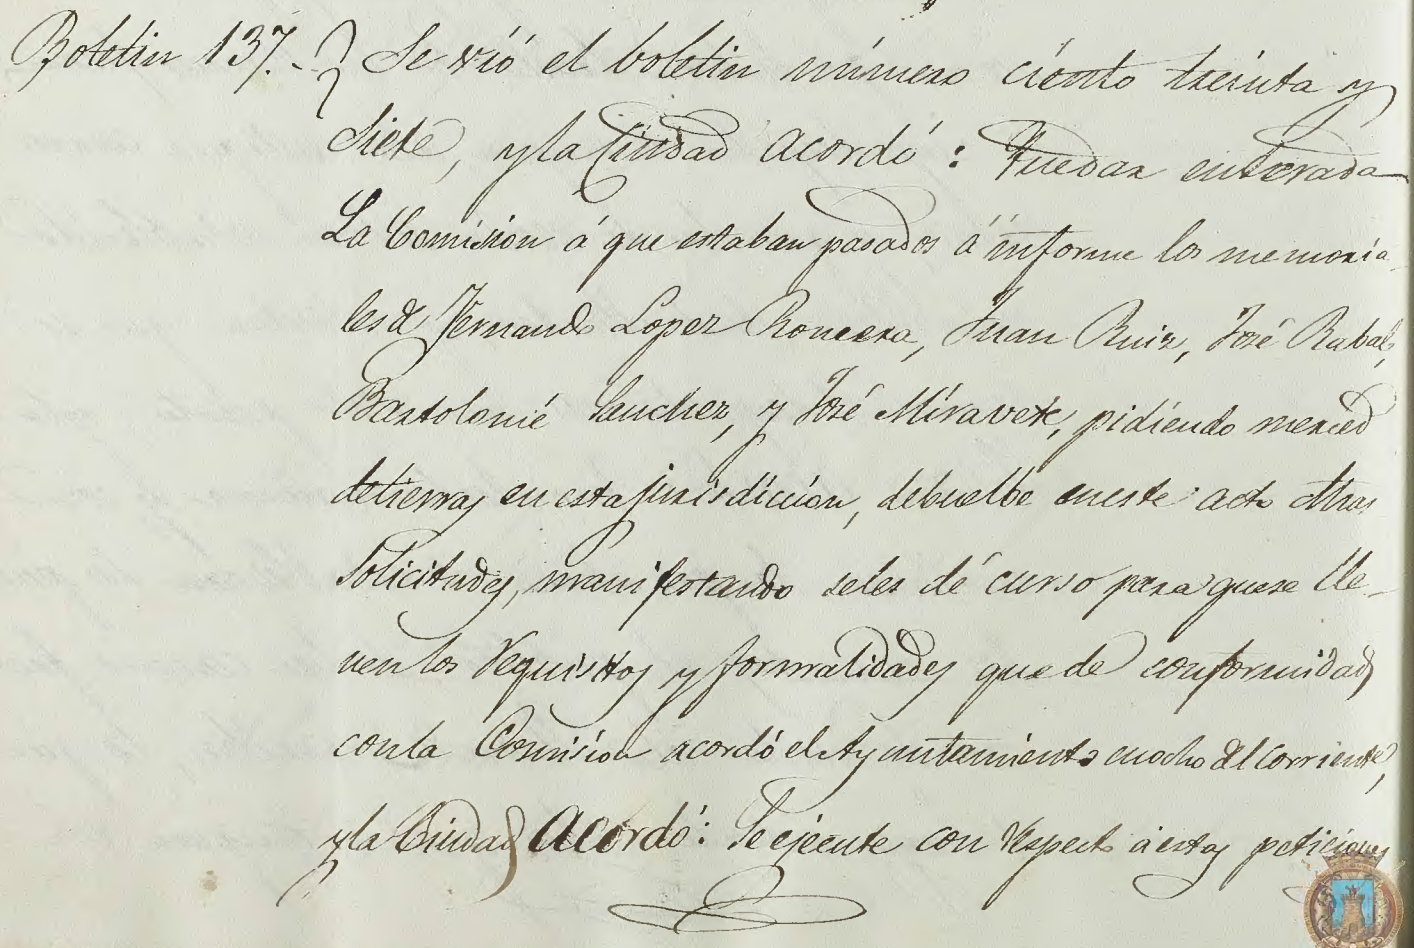 Boletin 137.- Se vió el boletin número ciento treinta y
siete, y la Ciudad acordó: Quedar enterada
La Comision á que estaban pasados á informe los memoria-
les de Fernando Lopez Roncera, Juan Ruiz, José Rabal,
Bartolomé Sanchez, y José Miravete, pidiendo merced
de tierras en esta jurisdiccion, debuelbe en este acto dhas
solicitudes, manifestando se les dé curso para que se lle-
nen los requisitos y formalidades que de conformidad
con la Comision acordó el Ayuntamiento en ocho del corriente,
y la Ciudad acordó: Se ejecute con respecto á estas peticiones